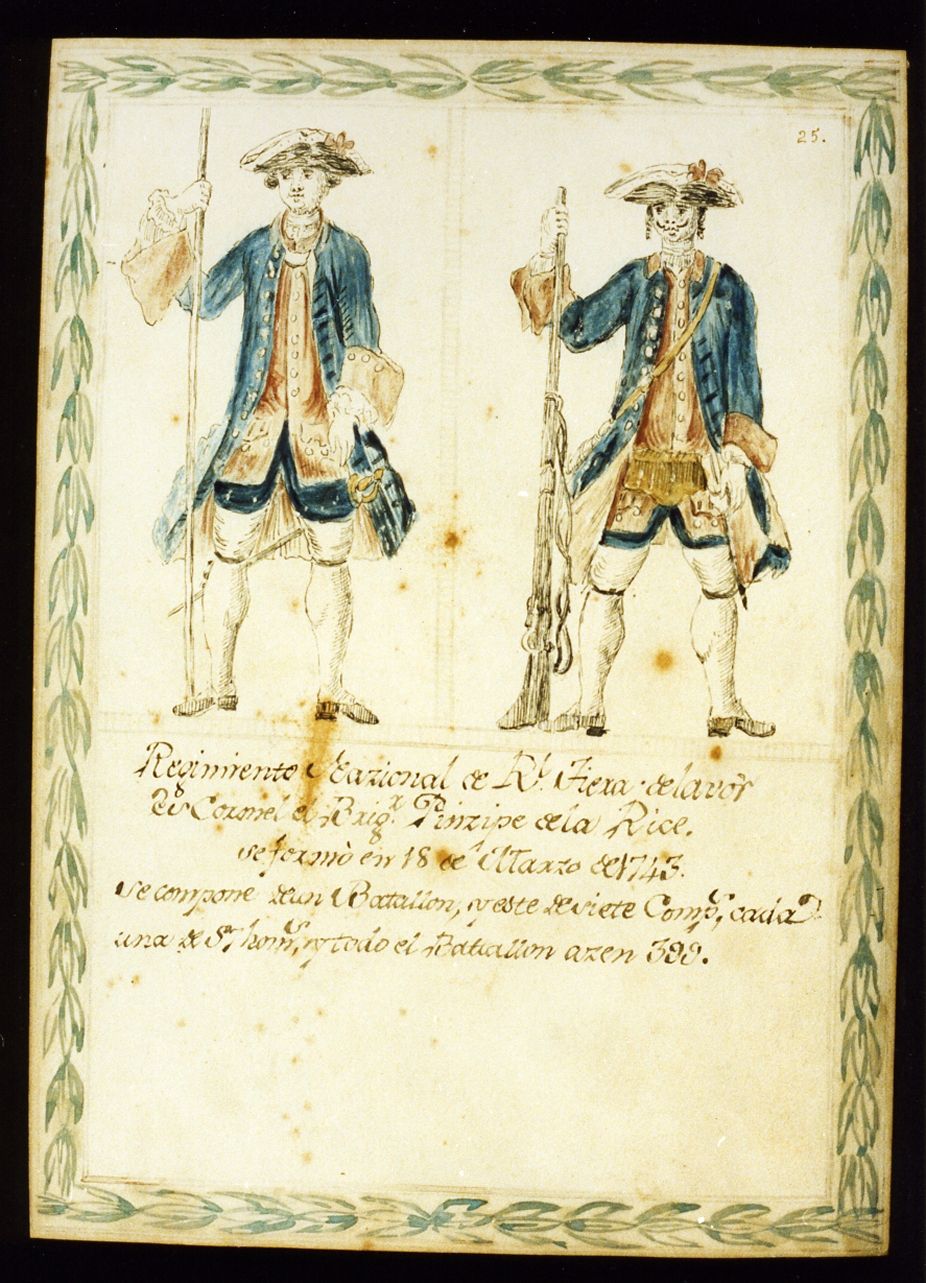 25.
Regimiento Nazional de Rl. Tiera delavor
Es Coronel el Brigr. Prinzipe dela Rice.
se formò en 18 de Marzo de 1743.
se compone de un Batallon, y este de siete Comps. cada
una de 57 homs. y todo el Batallon azen 399.